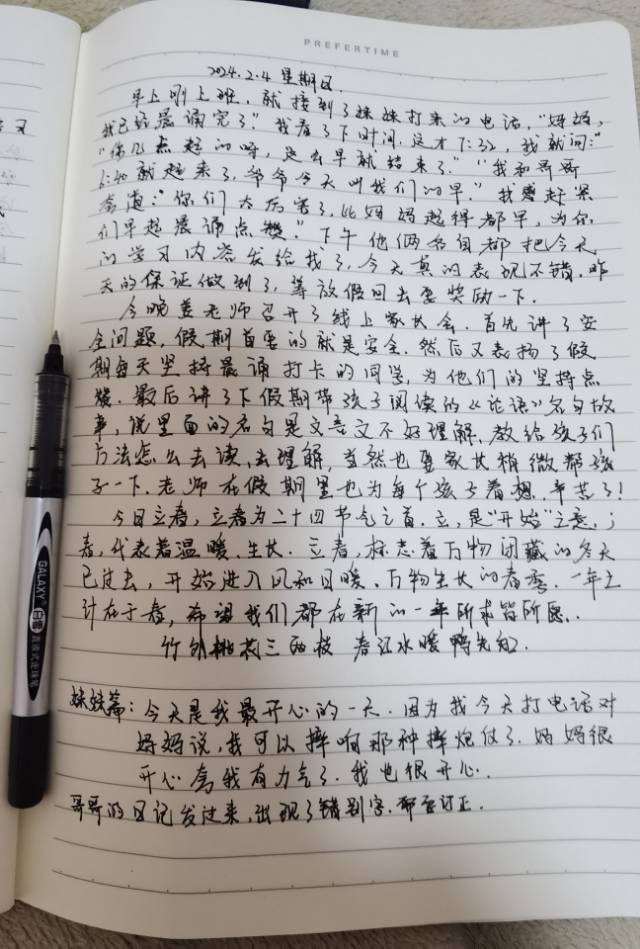 PREFERTIME
2024.2.4 星期日.
早上刚上班, 就接到了妹妹打来的电话, "妈妈,
我已经晨诵完了" 我看了下时间, 这才7:32, 我就问:
"你几点起的呀, 这么早就结束了" "我和哥哥
6:40就起来了, 爷爷今天叫我们的早." 我赶紧
答道: "你们太厉害了, 比妈妈起得都早, 为你
们早起晨诵点赞." 下午他俩各自都把今天
的学习内容发给我了, 今天真的表现不错, 昨
天的保证做到了, 等放假回去要奖励一下.
今晚姜老师召开了线上家长会. 首先讲了安
全问题, 假期首要的就是安全. 然后又表扬了假
期每天坚持晨诵打卡的同学, 为他们的坚持点
赞. 最后讲了下假期带孩子阅读的《论语》名句故
事, 说里面的名句是文言文不好理解, 教给孩子们
方法怎么去读, 去理解, 当然也要家长稍微帮孩
子一下. 老师在假期里也为每个孩子着想. 辛苦了!
今日立春, 立春为二十四节气之首. 立, 是"开始"之意;
春, 代表着温暖、生长. 立春, 标志着万物闭藏的冬天
已过去, 开始进入风和日暖、万物生长的春季. 一年之
计在于春, 希望我们都在新的一年所求皆所愿.
竹外桃花三两枝 春江水暖鸭先知.
妹妹篇: 今天是我最开心的一天. 因为我今天打电话对
妈妈说, 我可以摔响那种摔炮仗了. 妈妈很
开心 我有力气了. 我也很开心.
哥哥的日记发过来, 出现了错别字. 都否订正.
GALAXY
白雪
直液式走珠笔